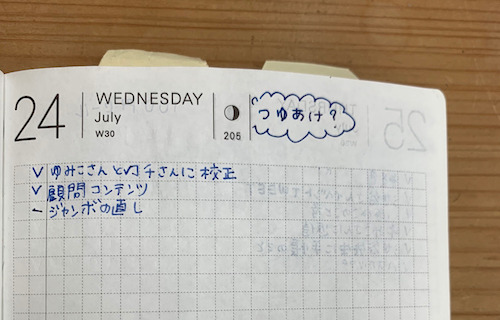 24
WEDNESDAY
July
W30
205
つゆあけ?
25
∨ ゆみこさんとコチさんに校正
∨ 顧問コンテンツ
ー ジャンボの直し